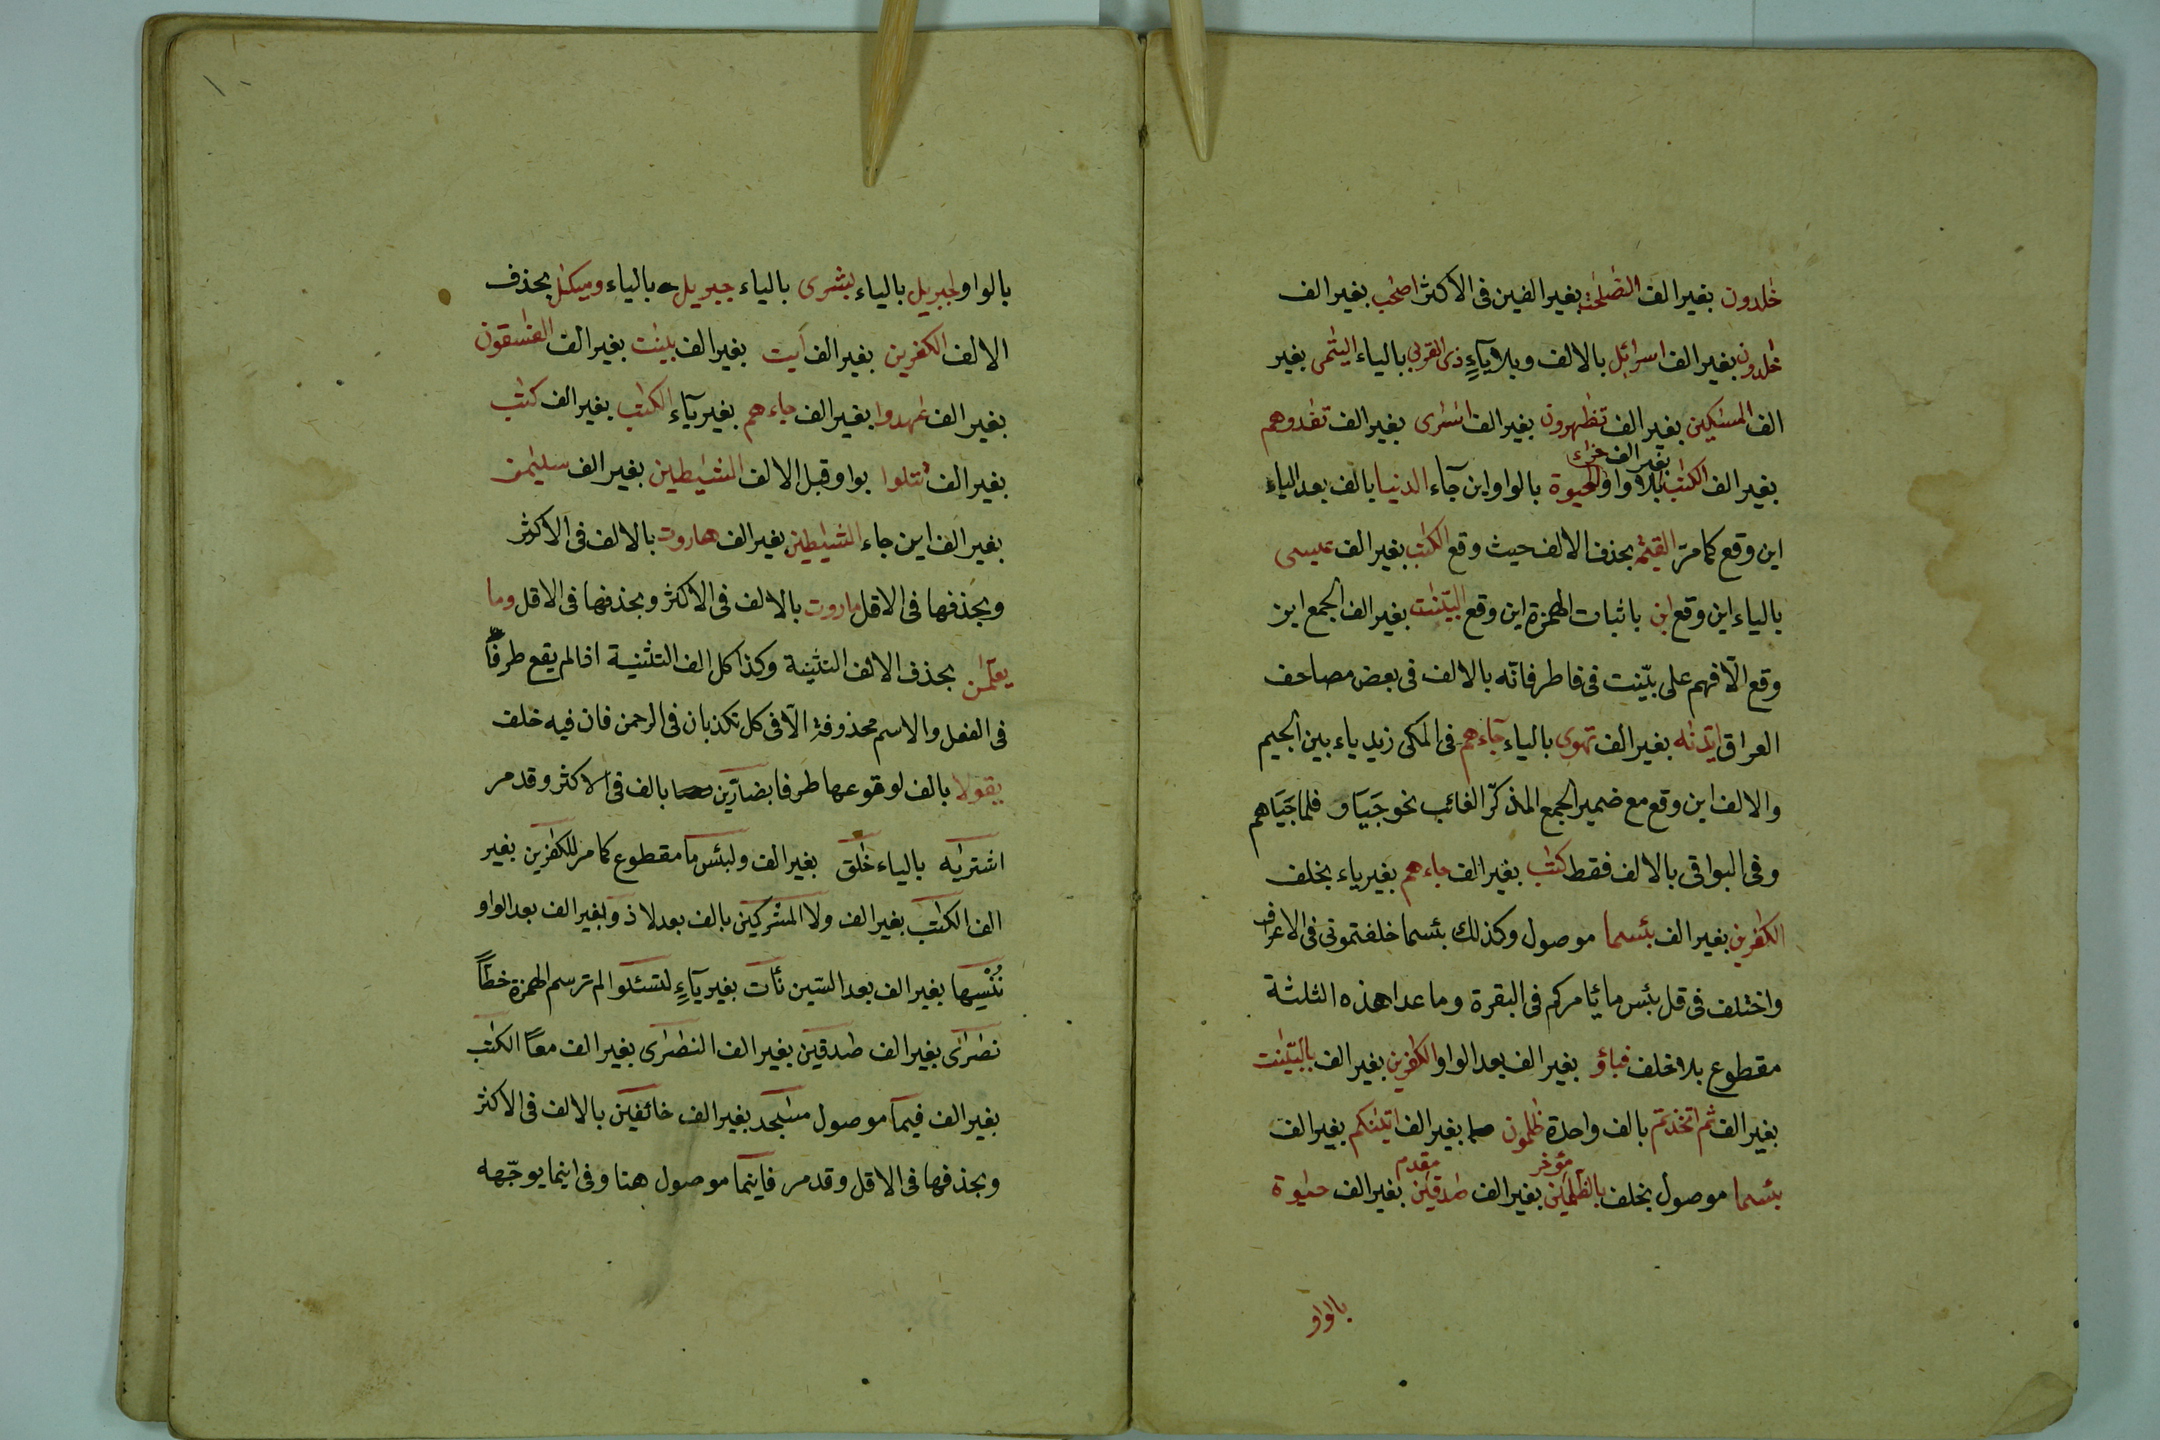 خٰلدون بغير الف الصّٰلحٰت بغير الفين فى الاكثر اصٰحب بغير الف
خٰلدون بغير الف اسرائل بالالف وبلا يآءٍ ذى القربى بالياء اليتٰمى بغير
الف المسٰكين بغير الف تظٰهرون بغير الف اسٰرى بغير الف تفٰدوهم
بغير الف جزاء
بغير الف الكتٰب بلا واو الحيوة بالواو اين جآء الدنيا بالف بعد الياء
اين وقع كما مرّ القيٰمة بحذف الالف حيث وقع الكتٰب بغير الف عيسى
بالياء اين وقع ابن باثبات الهمزة اين وقع البيّنٰت بغير الف الجمع اين
وقع الّا فهم على بيّنت فى فاطر فانّه بالالف فى بعض مصاحف
العراق ايّدنٰه بغير الف تهوى بالياء جآءهم فى المكى زيد ياء بين الجيم
والالف اين وقع مع ضمير الجمع المذكّر الغائب نحو جَيَاو فلما جَيَاهم
وفى البواقى بالالف فقط كتٰب بغير الف جاءهم بغير ياء بخلف
الكٰفرين بغير الف بئسما موصول وكذلك بئسما خلفتمونى فى الاعراف
واختلف فى قل بئس ما يأمركم فى البقرة وما عدا هذه الثلثة
مقطوع بلا خلف فباؤ بغير الف بعد الواو الكٰفرين بغير الف بالبيّنٰت
بغير الف ثم اتخذتم بالف واحدة ظٰلمون بغير الف اتيٰنكم بغير الف
مؤخر مقدم
بئسما موصول بخلف بالظّٰلمين بغير الف صٰدقين بغير الف حيٰوة
بالواو
بالواو لجبريل بالياء بشرى بالياء جبريل بالياء وميكٰل بحذف
الالف الكٰفرين بغير الف آيت بغير الف بيّنٰت بغير الف الفٰسقون
بغير الف عٰهدوا بغير الف جاءهم بغير يآء الكتٰب بغير الف كتٰب
بغير الف تتلوا بواو قبل الالف الشيٰطين بغير الف سليٰمن
بغير الف اين جاء الشيٰطين بغير الف هاروت بالالف فى الاكثر
وبحذفها فى الاقل ماروت بالالف فى الاكثر وبحذفها فى الاقل وما
يعلّمٰن بحذف الالف التثنية وكذا كل الف التثنية اذا لم يقع طرفًا
فى الفعل والاسم محذوفة الّا فى كل تكذبان فى الرحمن فان فيه خلف
يقولا بالف لوقوعها طرفا بضارّين بالف فى الاكثر وقد مر
اشتريٰه بالياء خلٰق بغير الف ولبئس ما مقطوع كما مر للكٰفرين بغير
الف الكتٰب بغير الف ولا المشركين بالف بعد لا ذو بغير الف بعد الواو
نُنْسِها بغير الف بعد السين نأت بغير يآءٍ لتسئلوا لم ترسم الهمزة خطًّا
نصٰرٰى بغير الف صٰدقين بغير الف النصٰرٰى بغير الف معًا الكتٰب
بغير الف فيما موصول مسٰجد بغير الف خائفين بالالف فى الاكثر
وبحذفها فى الاقل وقد مر فاينما موصول هنا وفى اينما يوجّهه